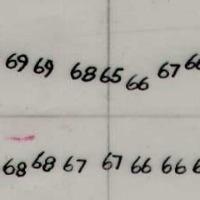 69 69 68 65 66 67 66
68 68 67 67 66 66 6